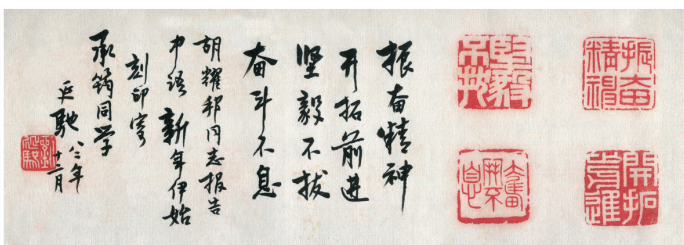 振奮精神
開拓前進
堅毅不拔
奮鬥不息
振奋精神
开拓前进
坚毅不拔
奋斗不息
胡耀邦同志报告
中语 新年伊始
刻印寄
承 同学
驰 八二年
十二月